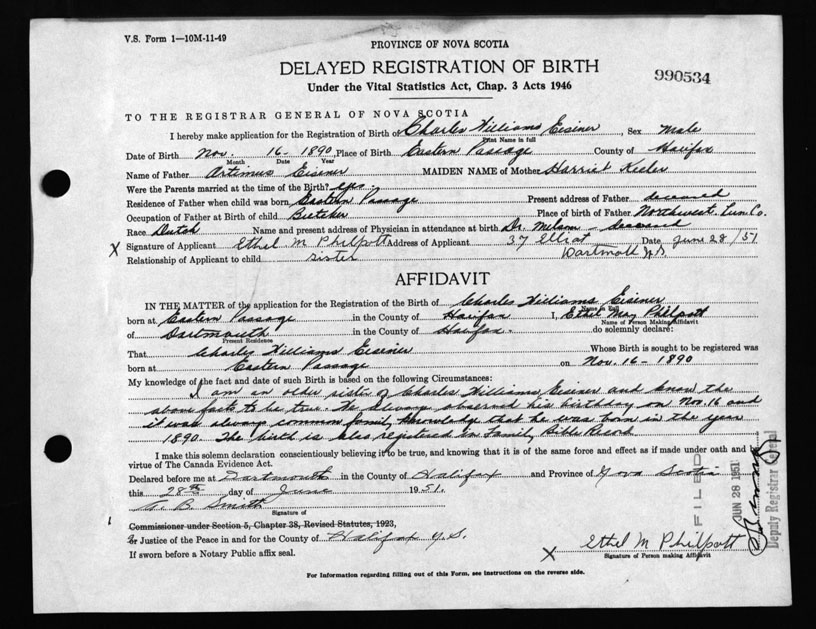 V.S. Form 1—10M-11-49
PROVINCE OF NOVA SCOTIA
DELAYED REGISTRATION OF BIRTH
990534
Under the Vital Statistics Act, Chap. 3 Acts 1946
TO THE REGISTRAR GENERAL OF NOVA SCOTIA
I hereby make application for the Registration of Birth of Charles Williams Eisiner, Sex Male
Print Name in full
Date of Birth Nov. 16 - 1890 Place of Birth Eastern Passage County of Halifax
Month Date Year
Name of Father Artimus Eisiner MAIDEN NAME of Mother Harriet
Were the Parents married at the time of the Birth? yes.
Residence of Father when child was born Eastern Passage Present address of Father deceased
Occupation of Father at Birth of child Butcher Place of birth of Father Northwest. Lun. Co.
Race Dutch Name and present address of Physician in attendance at birth Dr. - deceased
X Signature of Applicant Ethel M Philpott Address of Applicant 37 Elliot Date June 28/51
Relationship of Applicant to child sister Dartmoth N.S.
AFFIDAVIT
IN THE MATTER of the application for the Registration of Birth of Charles Williams Eisiner
Name in full
born at Eastern Passage in the County of Halifax I, Ethel May Philpott
Name of Person Making Affidavit
of Dartmouth in the County of Halifax. do solemnly declare:
Present Residence
That Charles Williams Eisiner Whose Birth is sought to be registered was
born at Eastern Passage on Nov. 16 - 1890
My knowledge of the fact and date of such Birth is based on the following Circumstances:
I am an older sister of Charles Williams Eisiner and know the
above facts to be true. We always observed his birthday on Nov. 16 and
it was always common family knowledge that he was born in the year
1890. The birth is also registered in Family Bible Record
I make this solemn declaration conscientiously believing it to be true, and knowing that it is of the same force and effect as if made under oath and by
virtue of The Canada Evidence Act.
Declared before me at Dartmouth in the County of Halifax and Province of Nova Scotia
this 28th day of June 1951.
A. B. Smith
Signature of
Commissioner under Section 5, Chapter 38, Revised Statutes, 1923,
or Justice of the Peace in and for the County of Halifax N.S.
If sworn before a Notary Public affix seal.
X Ethel M Philpott
Signature of Person making Affidavit
For Information regarding filling out of this Form, see instructions on the reverse side.
FILED
JUN 28 1951
Deputy Registrar General